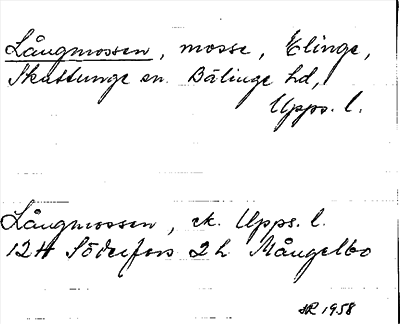 Långmossen, mosse, Elinge,
Skuttunge sn. Bälinge hd,
Upps. l.
Långmossen, ek. Upps. l.
12 H Söderfors 2 h Mångelbo
HR 1958